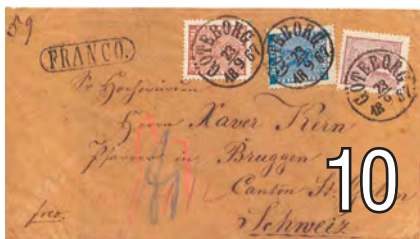 FRANCO.
GÖTEBORG
23
9
18 67
GÖTEBORG
23
9
18 67
GÖTEBORG
23
9
18 67
Herrn Xaver Kern
Pfarrer in Bruggen
Canton St. Gallen
Schweiz
frco.
10